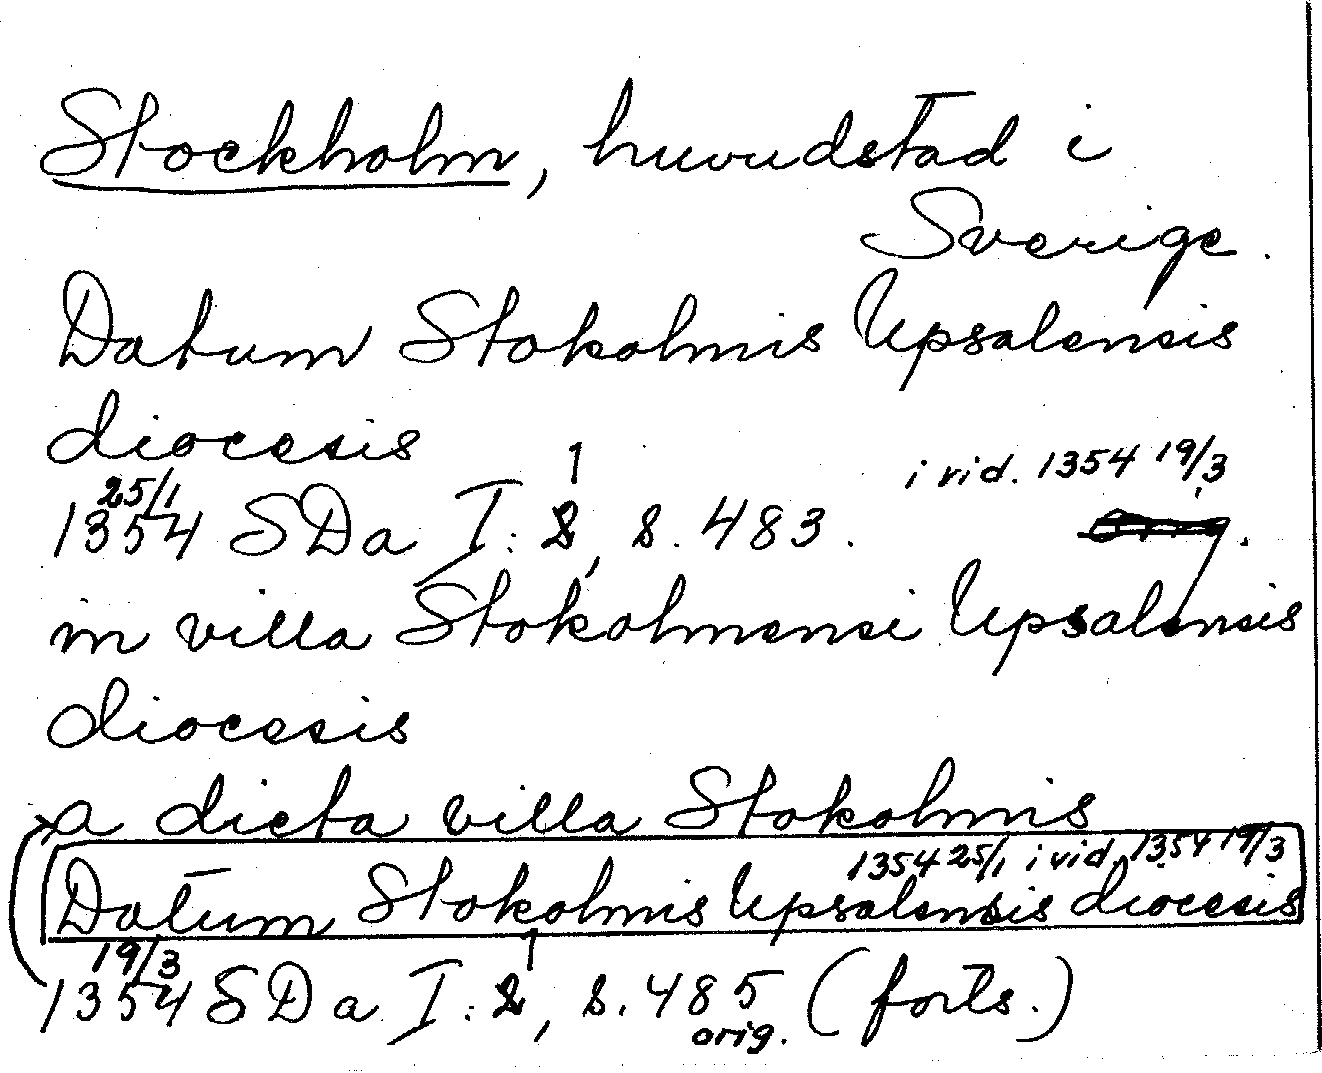 Stockholm, huvudstad i
Sverige.
Datum Stokolmis Upsalensis
diocesis
1
i vid. 1354 19/3
25/1
1354 SDa I:2, s. 483.
in villa Stokolmensi Upsalensis
diocesis
a dicta villa Stokolmis
1354 25/1 i vid. 1354 19/3
Datum Stokolmis Upsalensis diocesis
19/3
1
1354 SDa I:2, s. 485 (forts.)
orig.